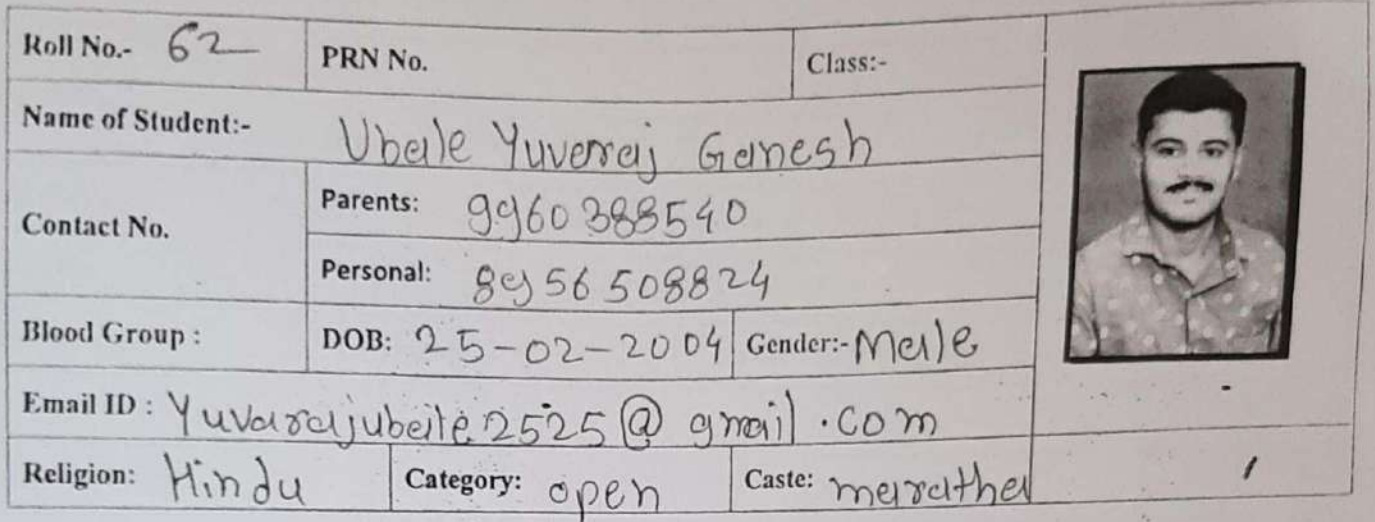 Roll No.- 62 PRN No. Class:-
Name of Student:- Ubale Yuvaraj Ganesh
Contact No. Parents: 9960388540
Personal: 8956508824
Blood Group : DOB: 25-02-2004 Gender:- Male
Email ID : Yuvarajubale2525@gmail.com
Religion: Hindu Category: open Caste: maratha